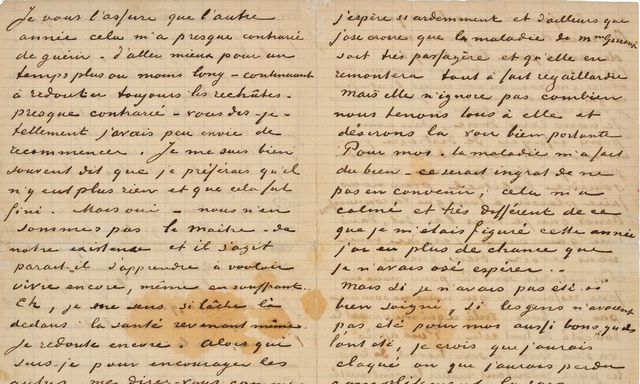 Je vous l'assure que l'autre
année cela m'a presque contrarié
de guérir - d'aller mieux pour un
temps plus ou moins long - continuant
à redouter toujours les rechûtes -
presque contrarié - vous dis-je -
tellement j'avais peu envie de
recommencer. Je me suis bien
souvent dit que je préférais qu'il
n'y eut plus rien et que cela fut
fini. Mais oui - nous n'en
sommes pas le maitre - de
notre existence et il s'agit
parait-il d'apprendre à vouloir
vivre encore, même en souffrant.
Eh, je me sens si lâche là
dedans la santé revenant même
je redoute encore. Alors qui
suis-je pour encourager les
autres, me direz-vous
j'espère si ardemment et d'ailleurs que
j'ose croire que la maladie de Mme Ginoux
soit très passagère et qu'elle en
remontera tout à fait regaillardie
mais elle n'ignore pas combien
nous tenons tous à elle et
désirons la voir bien portante
Pour moi - la maladie m'a fait
du bien - ce serait ingrat de ne
pas en convenir; cela m'a
calmé et très différent de ce
que je m'étais figuré cette année
j'ai eu plus de chance que
je n'avais osé espérer..
Mais si je n'avais pas été si
bien soigné, si les gens n'avaient
pas été pour moi aussi bons que
l'ont été, je crois que j'aurais
claqué ou que j'aurais perdu